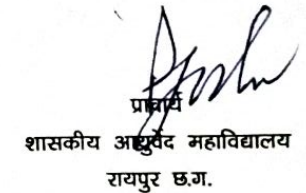 प्राचार्य
शासकीय आयुर्वेद महाविद्यालय
रायपुर छ.ग.